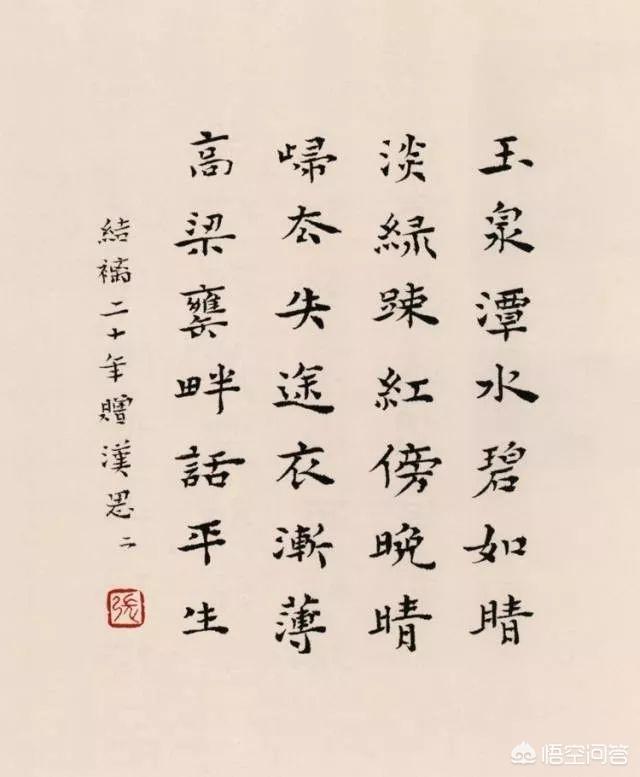 玉泉潭水碧如睛
淡綠踈紅傍晚晴
歸去失途衣漸薄
高梁甕畔話平生
結褵二十年贈漢思 二
張
悟空问答